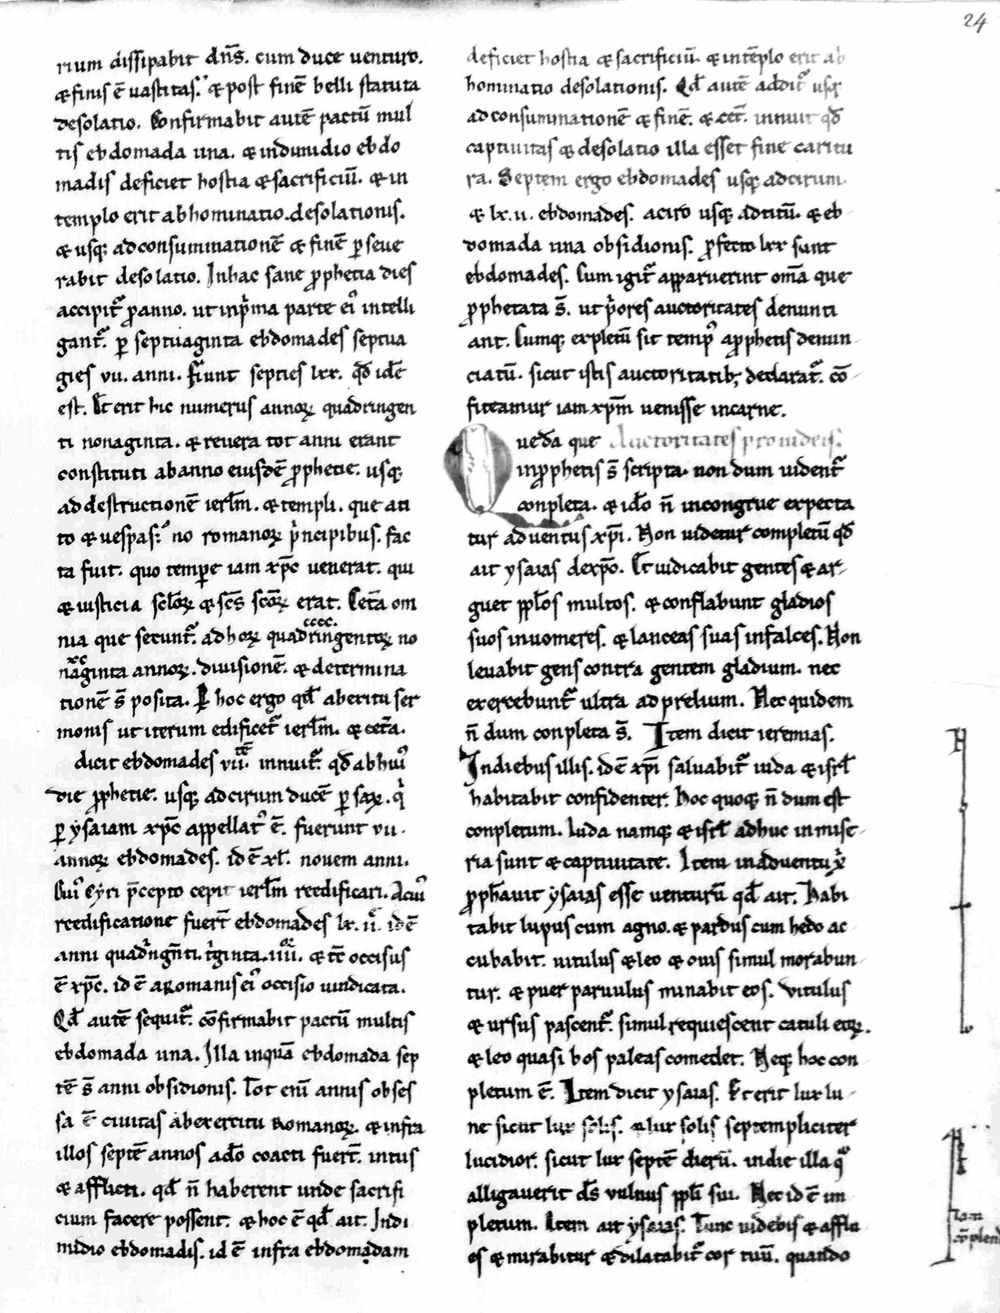 24
rium dissipabit dn̄s. cum duce venturo.
& finis ē uastitas. & post finē belli statuta
desolatio. Confirmabit autē pactū mul
tis ebdomada una. & in dimidio ebdo
madis deficiet hostia & sacrificiū. & in
templo erit abhominatio desolationis.
& usq; ad consummationē & finē p̱seue
rabit desolatio. In hac sane p̱phetia dies
accipit᷑ p̱ anno. ut in p̍ma parte ei᷒ intelli
gant᷑. p̱ septuaginta ebdomades septua
gies vii. anni. fiunt septies lxx. qd̄ idē
est. Et erit hic numerus annoꝝ quadringen
ti nonaginta. & reuera tot anni erant
constituti ab anno eiusdē p̱phetie. usq;
ad destructionē ierl̄m. & templi. que a ti
to & uespas᷒. romanoꝝ p̍ncipibus. fac
ta fuit. quo tempore iam xp̄c uenerat. qui
& iusticia & sc̄s sc̄oꝝ erat. Cet̄a om
nia que secunt᷑. ad hoꝝ quadringentoꝝ no
naginta annoꝝ. diuisionē. & determina
tionē s̄ posita. P̱ hoc ergo qd̄ ab exitu ser
monis ut iterum edificet᷑ ierl̄m. & cet̄a.
dicit ebdomades vii. innuit᷑. qd̄ ab hui᷒
die p̱phetie. usq; ad cirum ducē p̱saꝝ. q̍
p̱ ysaiam xp̄c appellat᷒ ē. fuerunt vii.
annoꝝ ebdomades. id ē xl. novem anni.
Cui᷒ Cyri p̄cepto cepit ierl̄m reedificari. A cui᷒
reedificatione fuer̄t ebdomades lx. ii. id ē
anni quadringn̄ti. t̍ginta. iiii. & tc̄ occisus
ē xp̄c. id ē a Romanis ei᷒ occisio uindicata.
Qd̄ autē sequit᷑. cōfirmabit pactū multis
ebdomada una. Illa inquā ebdomada sep
tē s̄ anni obsidionis. Tot eni annis obses
sa ē ciuitas ab exercitu Romanoꝝ. & infra
illos septē annos ado̅ coacti fuer̄t. intus
& afflicti. qd̄ n̄ haberent unde sacrifi
cium facere possent. & hoc ē qd̄ ait. In di
midio ebdomadis. id ē infra ebdomadam
deficiet hostia & sacrificiū. & in tēplo erit ab
hominatio desolationis. Qd̄ autē addit᷑ usq;
ad consummationē & finē. & cet̄. innuit qd̄
captiuitas & desolatio illa esset fine caritu
ra. Septem ergo ebdomades usq; ad cirum.
& lx. ii. ebdomades. a ciro usq; ad titū. & eb
domada una obsidionis. p̱fecto lxx sunt
ebdomades. Cum igit᷑ apparuerint om̄a que
p̱phetata s̄. ut p̍ores auctoritates denunti
ant. Cumq; expletū sit temp᷒ a p̱phetis denun
ciatū. sicut istis auctoritatib; declarat᷑. cō
fiteamur iam xp̄m uenisse in carne.
Quedā que Auctoritates pro iudeis.
in p̱phetis s̄ scripta. non dum uident᷑
conpleta. & ido̅ n̄ incongrue expecta
tur aduentus xp̄i. Non uidetur completū qd̄
ait ysaias de xp̄o. Et iudicabit gentes & ar
guet pp̄los multos. & conflabunt gladios
suos in uomeres. & lanceas suas in falces. Non
leuabit gens contra gentem gladium. nec
exercebunt᷑ ultra ad prelium. Nec quidem
n̄ dum conpleta s̄. Item dicit ieremias.
In diebus illis. id ē xp̄i saluabit᷑ iuda & isrl̄
habitabit confidenter. Hoc quoq; n̄ dum est
conpletum. Iuda namq; & isrl̄ adhuc in mise
ria sunt & captiuitate. Item in aduentu xp̄i
p̱ph̄auit ysaias esse uenturū qd̄ ait. Habi
tabit lupus cum agno. & pardus cum hedo ac
cubabit. uitulus & leo & ouis simul morabun
tur. & puer paruulus minabit eos. Vitulus
& ursus pascent᷑. simul requiescent catuli eoꝝ.
& leo quasi bos paleas comedet. Neq; hoc con
pletum ē. Item dicit ysaias. Et erit lux lu
ne sicut lux solis. & lux solis septempliciter
lucidior. sicut lux septē dierū. in die illa q̄
alligauerit ds̄ vulnus pp̄li sui. Nec id ē im
pletum. Item ait ysaias. Tunc uidebis & afflu
es & mirabitur & dilatabit᷑ cor tuū. quando